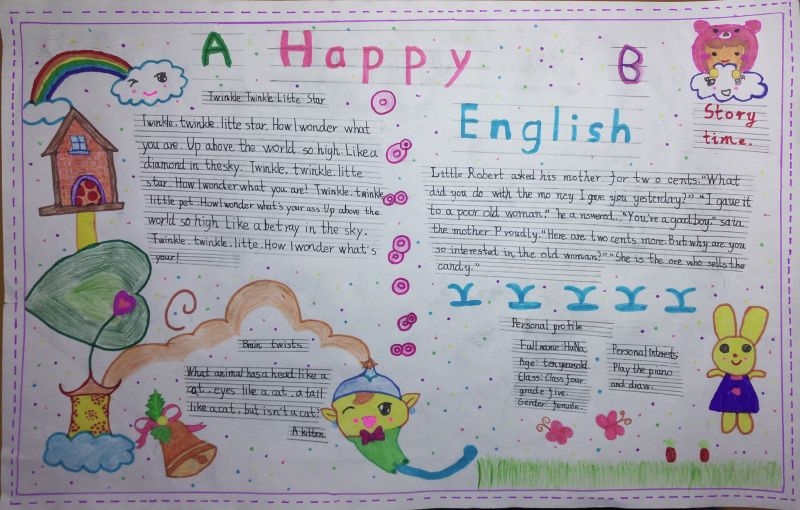 A Happy B
English
Story
time.
Twinkle Twinkle Litte Star
Twinkle. twinkle. litte star. How I wonder what
you are. Up above the world so high. Like a
diamond in the sky. Twinkle. twinkle. litte
star. How I wonder what you are! Twinkle. twinkle
little pet. How I wonder what's your ass. Up above the
world so high Like a betray in the sky.
Twinkle. twinkle. litte. How I wonder what's
your!
Little Robert asked his mother for two cents. "What
did you do with the mo ney I gave you yesterday?" "I gave it
to a poor old woman." he answered. "You're a good boy." said
the mother Proudly. "Here are two cents more. But why are you
so interested in the old woman?" "She is the one who sells the
candy."
Brain twists
What animal has a head like a
cat. eyes like a cat. a tail
like a cat. but isn't a cat?
A kitten.
Personal profile
Full name: HuNa.
Age: ten years old.
Class: Class four
grade five.
Gender: female.
Personal Interests:
Play the piano
and draw.